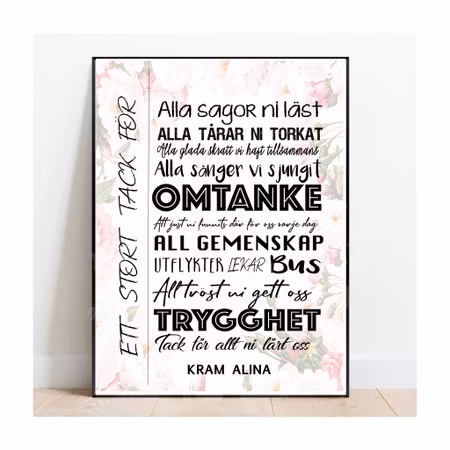 ETT STORT TACK FÖR
Alla sagor ni läst
ALLA TÅRAR NI TORKAT
Alla glada skratt vi haft tillsammans
Alla sånger vi sjungit
OMTANKE
Att just ni funnits där för oss varje dag
ALL GEMENSKAP
UTFLYKTER LEKAR BUS
All tröst ni gett oss
TRYGGHET
Tack för allt ni lärt oss
KRAM ALINA